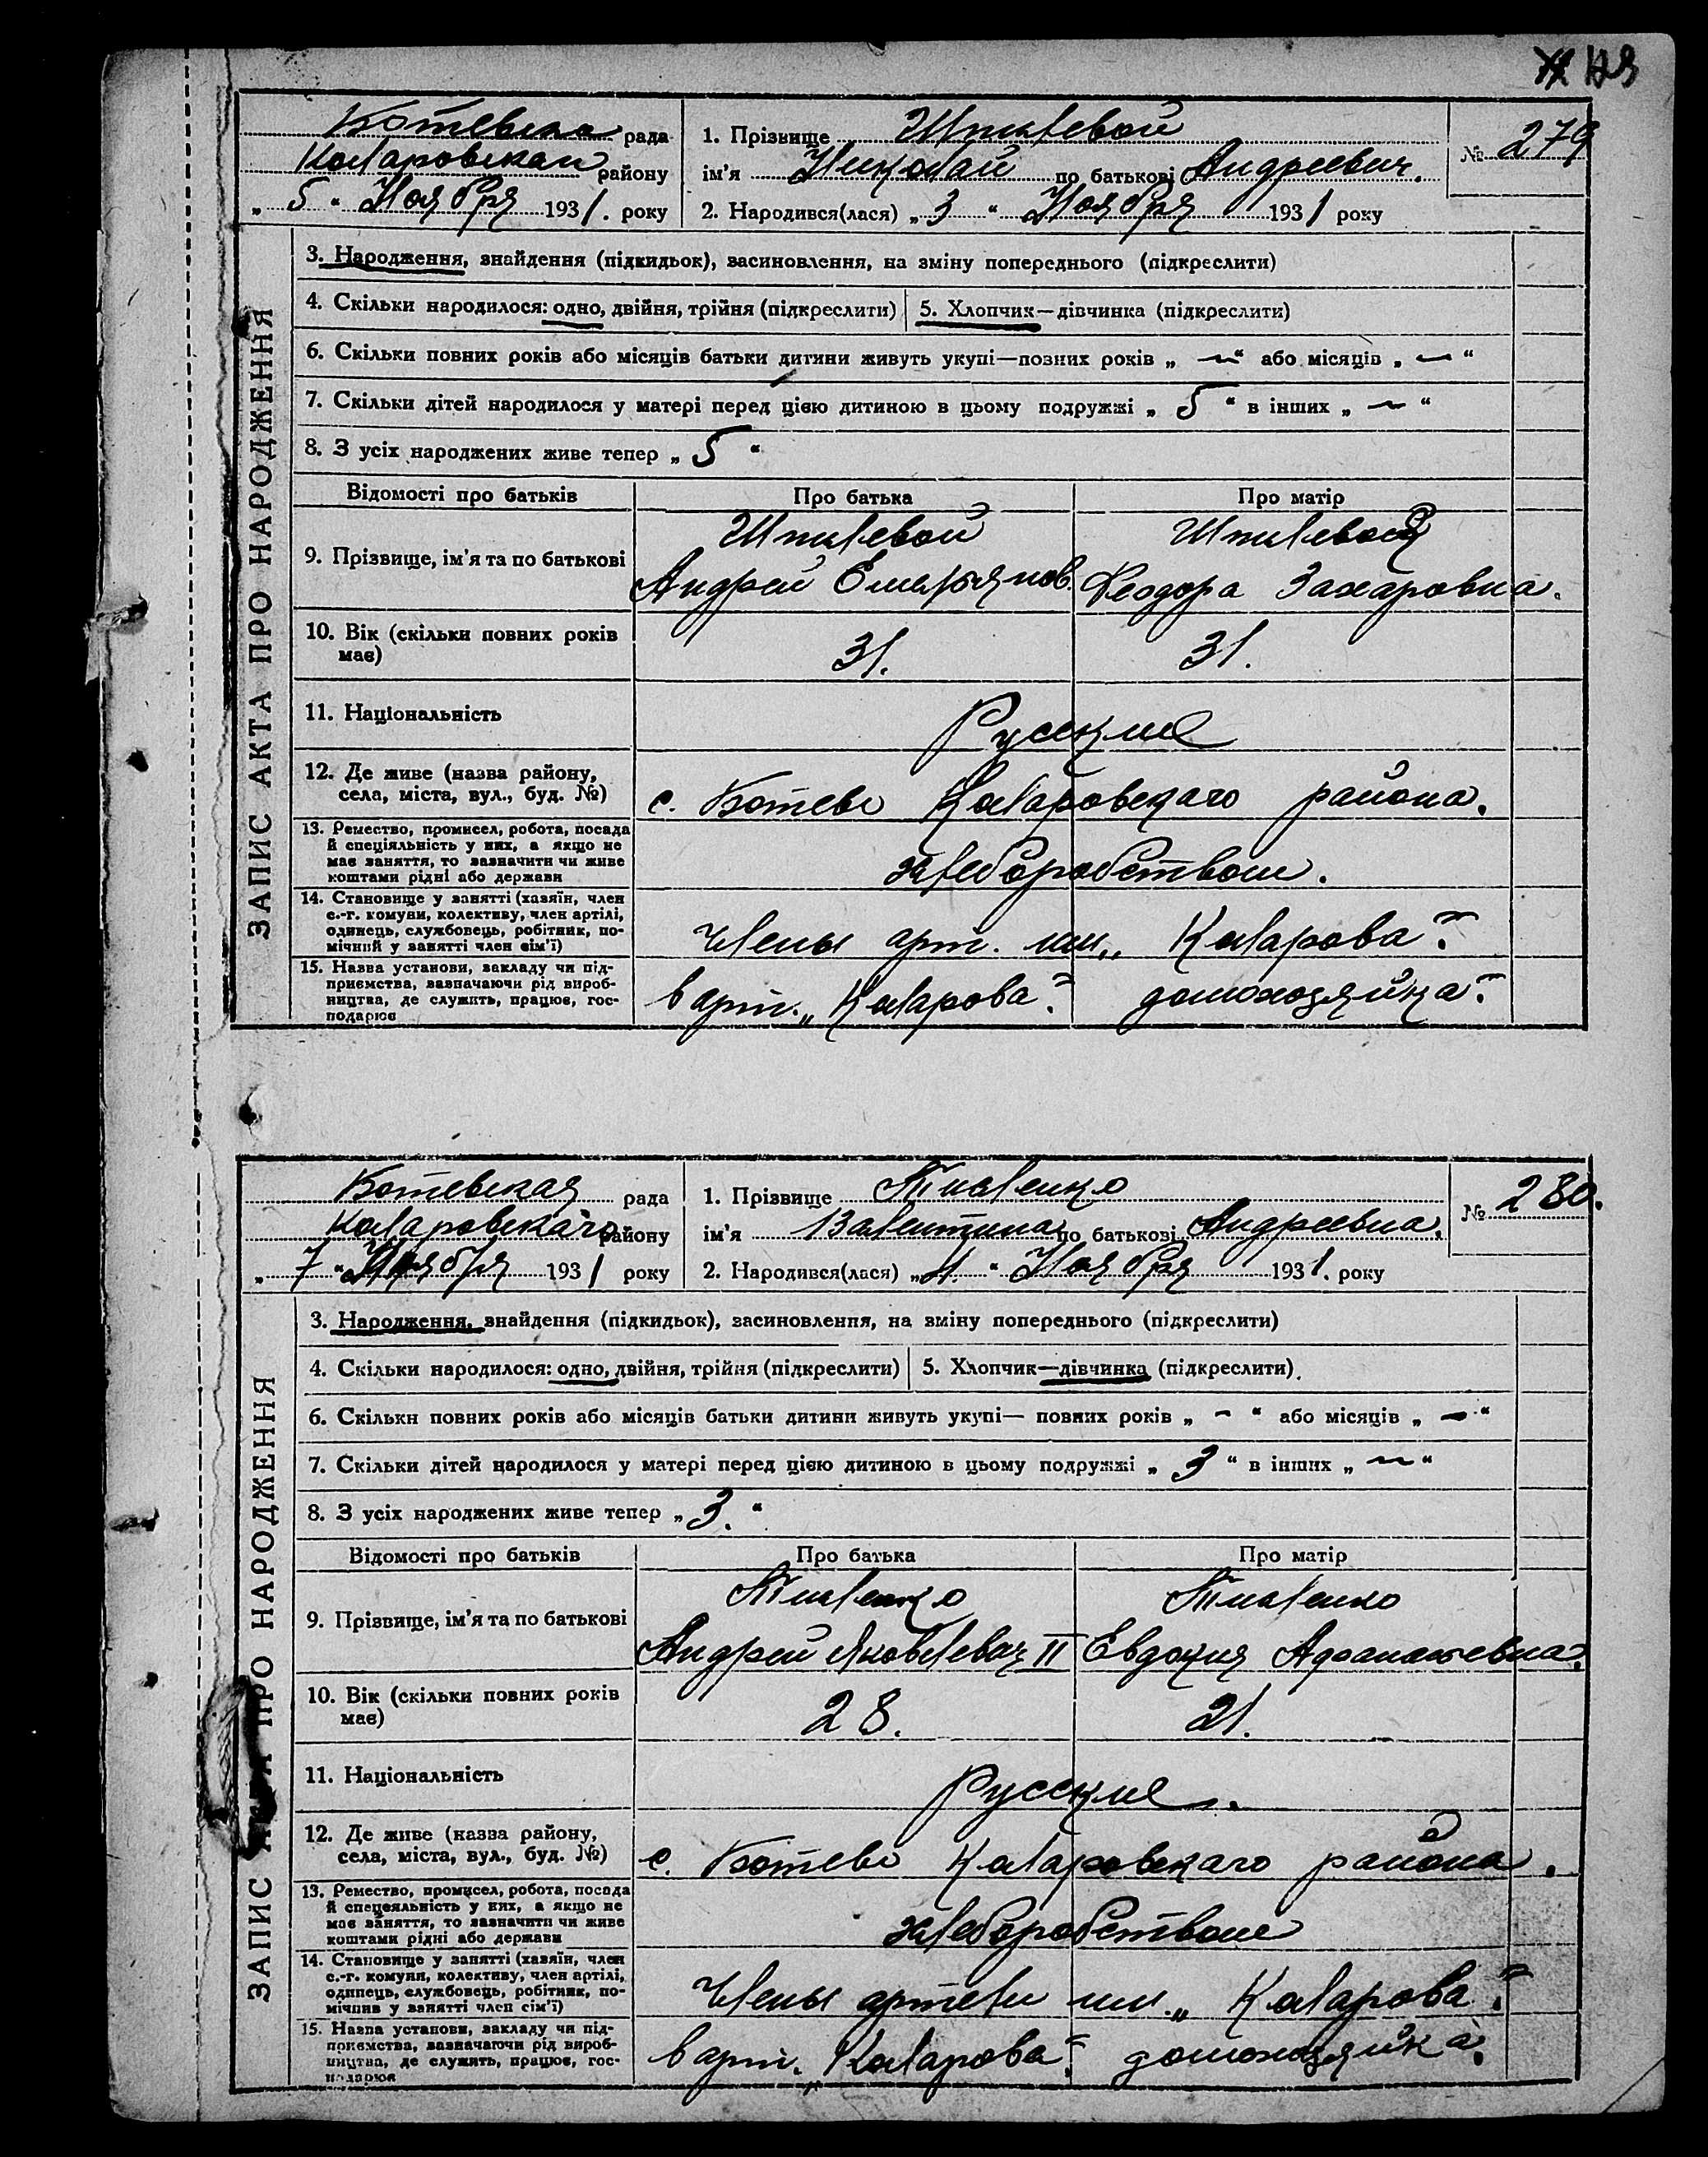 123
Ботевская рада
Коларовская району
„ 5 “ Ноября 1931. року
1. Прізвище Шпилевой
ім'я Николай по батькові Андреевич.
2. Народився(лася) „ 3 “ Ноября 1931 року
№ 279
ЗАПИС АКТА ПРО НАРОДЖЕННЯ
3. Народження, знайдення (підкидьок), васиновлення, на зміну попереднього (підкреслити)
4. Скільки народилося: одно, двійня, трійня (підкреслити)
5. Хлопчик—дівчинка (підкреслити)
6. Скільки повних років або місяців батьки дитини живуть укупі—повних років „ — “ або місяців „ — “
7. Скільки дітей народилося у матері перед цією дитиною в цьому подружжі „ 5 “ в інших „ — “
8. З усіх народжених живе тепер „ 5 “
Відомості про батьків Про батька Про матір
9. Прізвище, ім'я та по батькові
Шпилевой
Андрей Емельянов.
Шпилевой
Феодора Захаровна.
10. Вік (скільки повних років
має)
31. 31.
11. Національність
Русские
12. Де живе (назва району,
села, міста, вул., буд. №)
с. Ботево Коларовскаго района.
13. Ремество, промисел, робота, посада
й спеціяльність у них, а якщо не
має заняття, то зазначити чи живе
коштами рідні або держави
хлеборобством.
14. Становище у занятті (хазяїн, член
с.-г. комуни, колективу, член артілі,
одинець, службовець, робітник, по-
мічний у занятті член сім'ї)
Члены арт. им. „Коларова“.
15. Назва установи, закладу чи під-
приємства, зазначаючи рід вироб-
ництва, де служить, працює, гос-
подарює
в арт. „Коларова“. домохозяйка.
Ботевская рада
Коларовскаго району
„ 7 “ Ноября 1931 року
1. Прізвище
ім'я Валентина по батькові Андреевна.
2. Народився(лася) „ 4. “ Ноября 1931. року
№ 280.
ЗАПИС АКТА ПРО НАРОДЖЕННЯ
3. Народження, знайдення (підкидьок), засиновлення, на зміну попереднього (підкреслити)
4. Скільки народилося: одно, двійня, трійня (підкреслити)
5. Хлопчик—дівчинка (підкреслити).
6. Скільки повних років або місяців батьки дитини живуть укупі— повних років „ — “ або місяців „ — “
7. Скільки дітей народилося у матері перед цією дитиною в цьому подружжі „ 3 “ в інших „ — “
8. З усіх народжених живе тепер „ 3. “
Відомості про батьків Про батька Про матір
9. Прізвище, ім'я та по батькові
Андрей Яковлевич II
Евдокия Афанасьевна.
10. Вік (скільки повних років
має)
28. 21.
11. Національність
Русские.
12. Де живе (назва району,
села, міста, вул., буд. №)
с. Ботево Коларовскаго района.
13. Ремество, промисел, робота, посада
й спецеяльність у них, а якщо не
має заняття, то зазначити чи живе
коштами рідні або держави
хлеборобством
14. Становище у занятті (хазяїн, член
с.-г. комуни, колективу, член артілі,
одинець, службовець, робітник, по-
мічний у занятті член сім'ї)
Члены артели им. „Коларова“.
15. Назва установи, закладу чи під-
приємства, зазначаючи рід вироб-
ництва, де служить, працює, гос-
подарює
в арт. „Коларова“. домохозяйка.